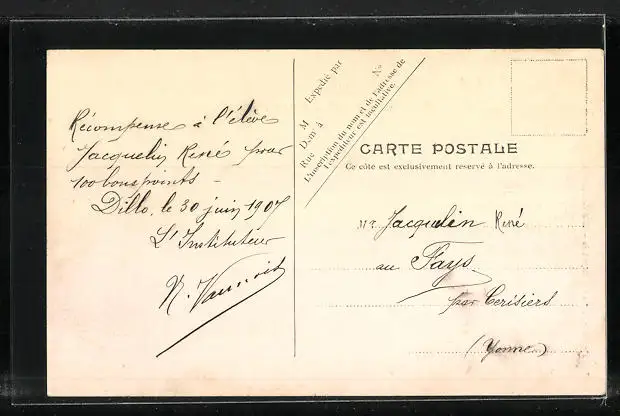 Récompense à l'élève
Jacquelin René pour
100 bons points -
Dillo, le 30 juin 1907
L'Instituteur
Expédié par
M
Dem t à
Rue
No
L'inscription du nom et de l'adresse de
l'expéditeur est facultative.
CARTE POSTALE
Ce côté est exclusivement réservé à l'adresse.
Mr Jacquelin René
au Fays
par Cerisiers
(Yonne)